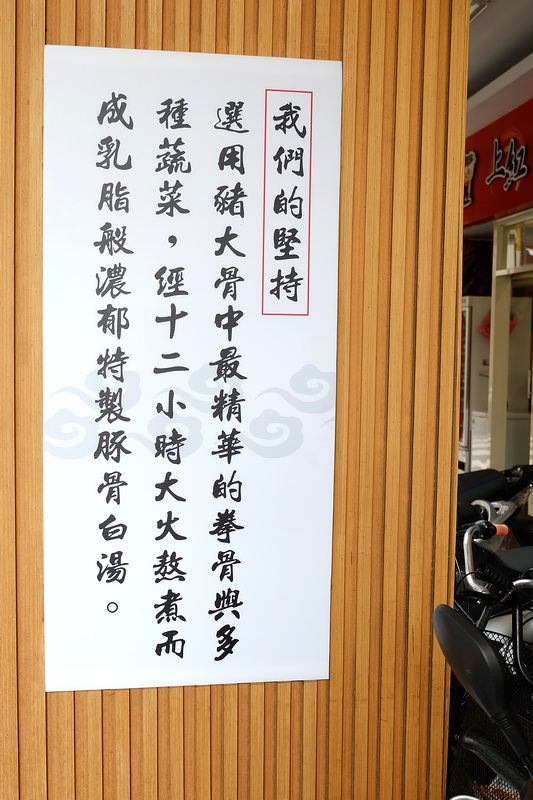 我們的堅持
選用豬大骨中最精華的拳骨與多
種蔬菜，經十二小時大火熬煮而
成乳脂般濃郁特製豚骨白湯。
上紅